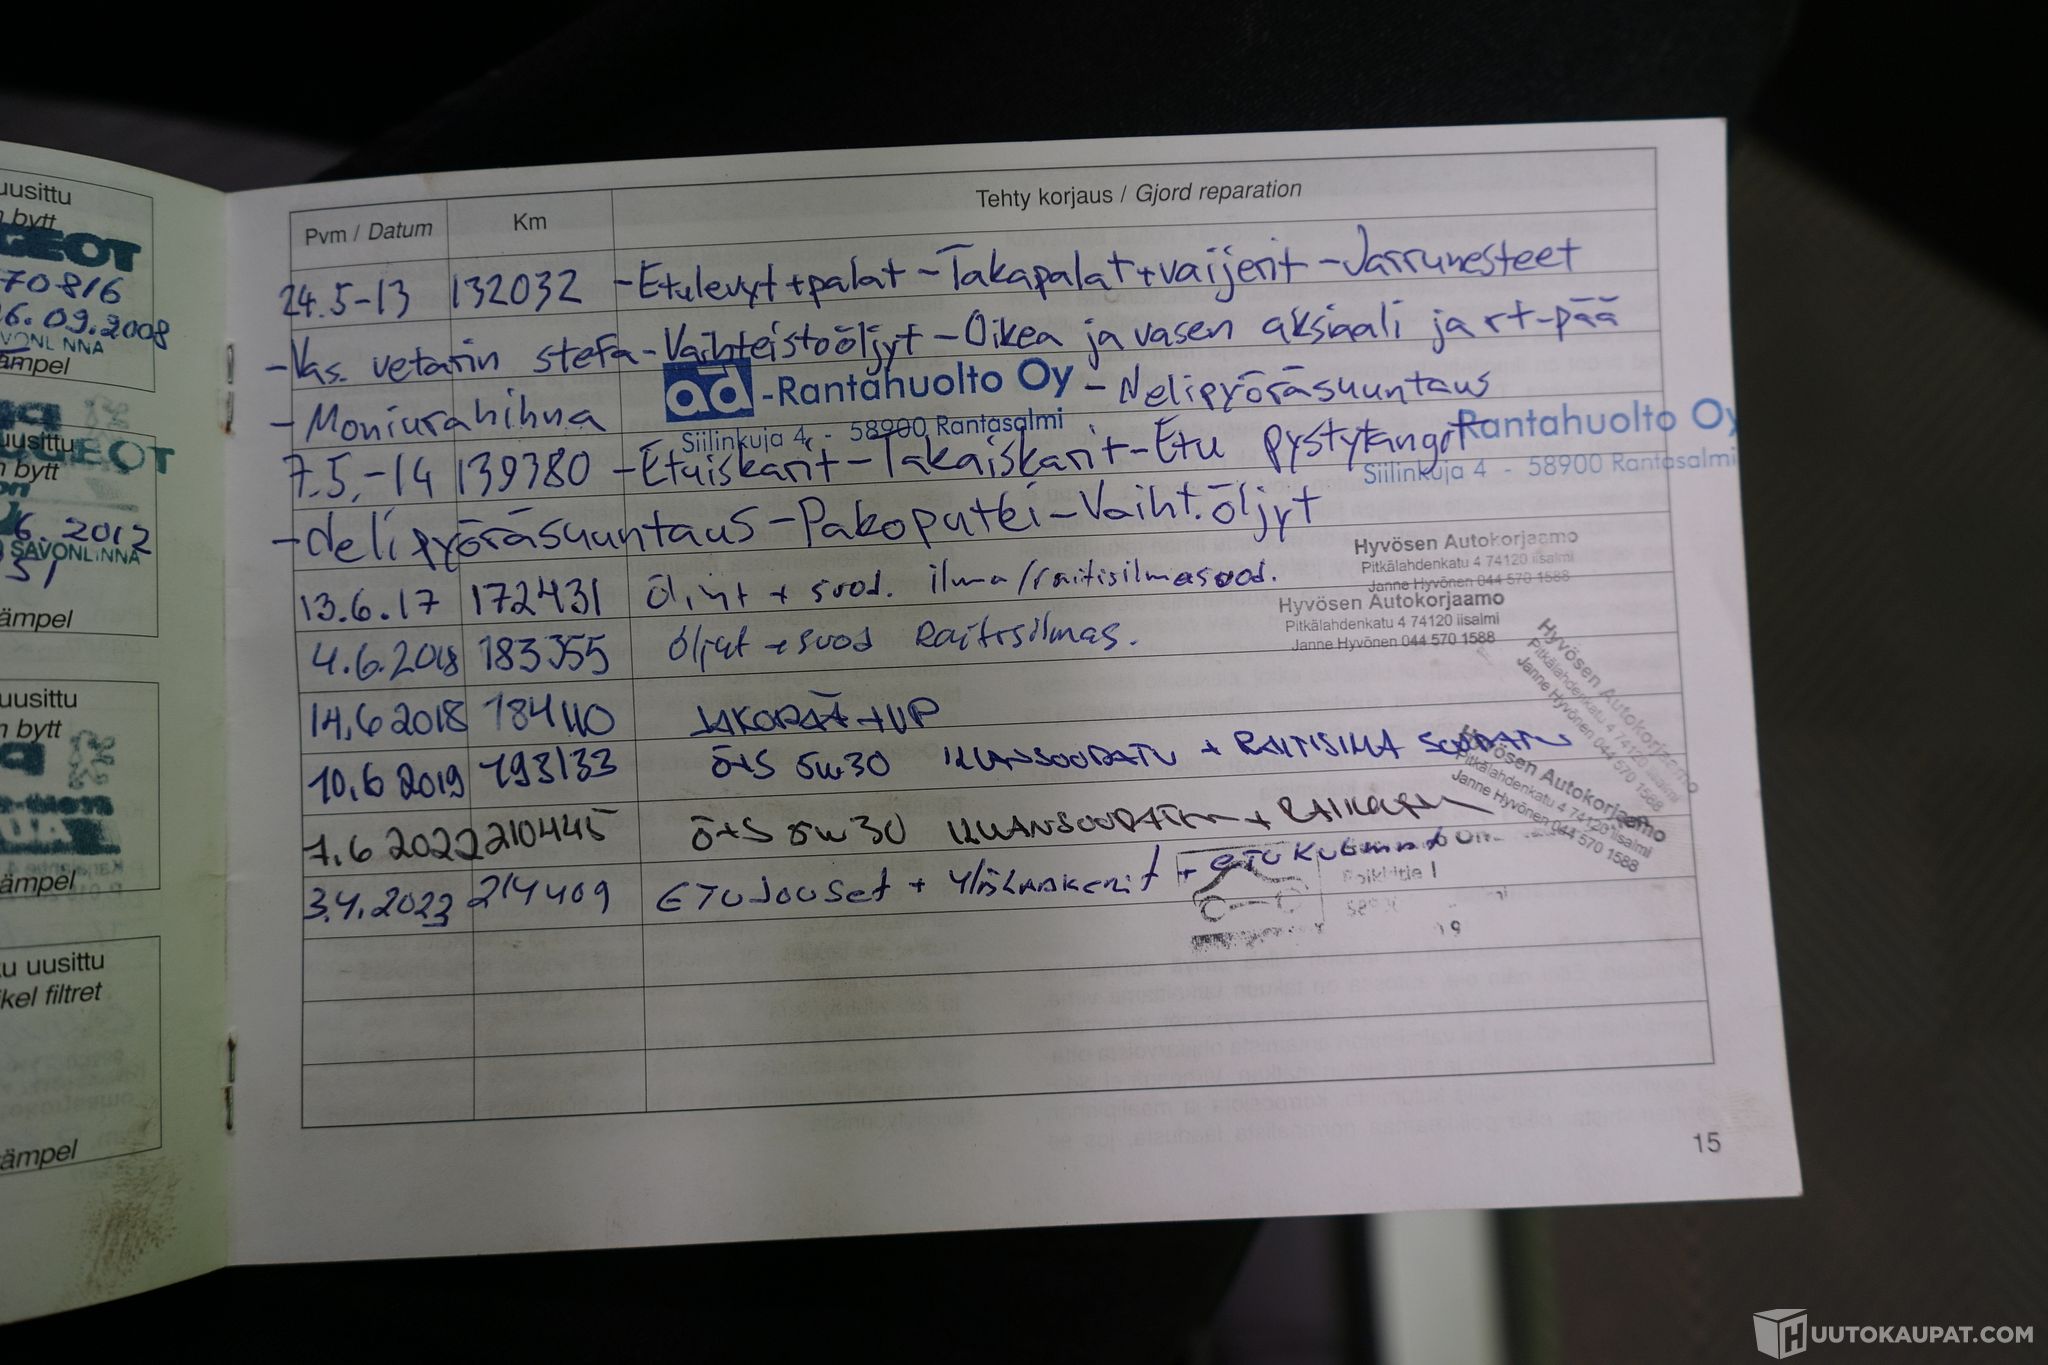 uusittu
bytt
GEOT
70816
26.09.2008
VONLINNA
ämpel
uusittu
n bytt
UGEOT
6.2012
SAVONLINNA
51
ämpel
uusittu
n bytt
ämpel
u uusittu
kel filtret
ämpel
Pvm / Datum Km Tehty korjaus / Gjord reparation
24.5-13 132032 -Etulevyt+palat -Takapalat+vaijerit -Jarrunesteet
-Vas. vetarin stefa -Vaihteistoöljyt -Oikea ja vasen aksiaali ja rt-pää
-Moniurahihna ad-Rantahuolto Oy -Nelipyöräsuuntaus
Siilinkuja 4 - 58900 Rantasalmi
Rantahuolto Oy
Siilinkuja 4 - 58900 Rantasalmi
7.5.-14 139380 -Etuiskarit -Takaiskarit -Etu pystytangot
-Nelipyöräsuuntaus -Pakoputki -Vaiht.öljyt
Hyvösen Autokorjaamo
Pitkälahdenkatu 4 74120 iisalmi
Janne Hyvönen 044 570 1588
13.6.17 172431 Öljyt + suod. ilma/raitisilmasuod.
Hyvösen Autokorjaamo
Pitkälahdenkatu 4 74120 iisalmi
Janne Hyvönen 044 570 1588
4.6.2018 183355 öljyt + suod Raitisilmas.
Hyvösen Autokorjaamo
Pitkälahdenkatu 4 74120 iisalmi
Janne Hyvönen 044 570 1588
14.6 2018 184110 JAKOPÄÄ + VP
10.6 2019 193133 Ö+S 5w30 ILMANSUODATIN + RAITISILMA SUODATIN
Hyvösen Autokorjaamo
Pitkälahdenkatu 4 74120 iisalmi
Janne Hyvönen 044 570 1588
7.6 2022 210445 Ö+S 5w30 ILMANSUODATIN +
3.4.2023 214409 ETUJOUSET + yläLAAKERIT + ETU
15
HUUTOKAUPAT.COM